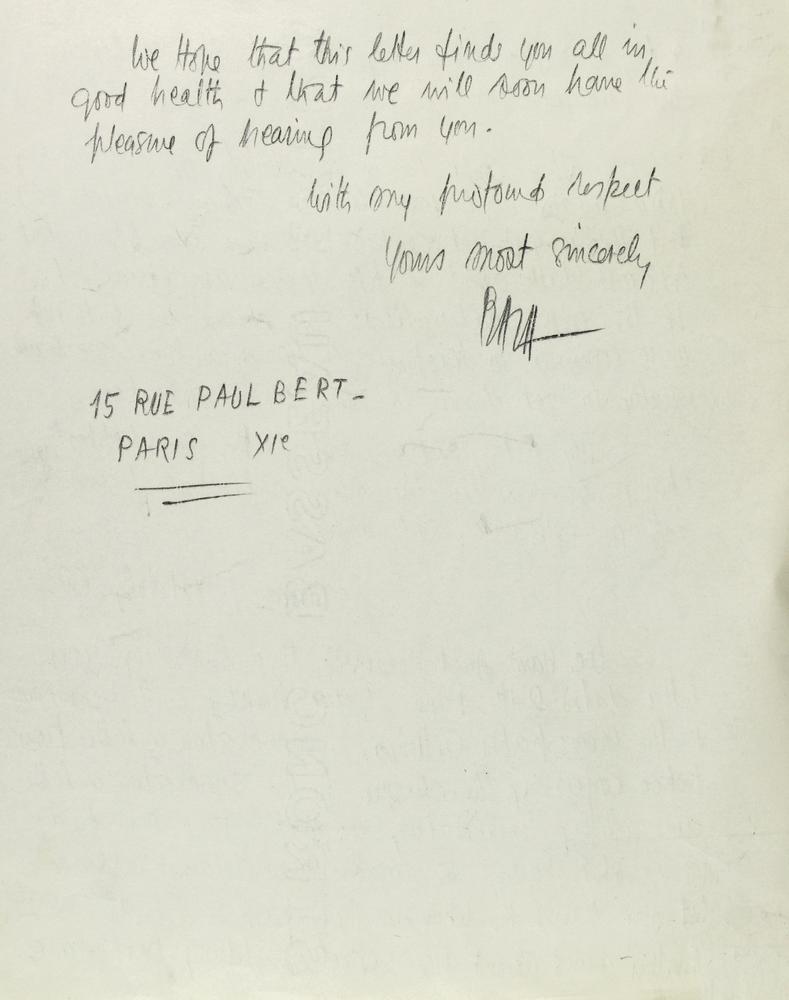 We Hope that this letter finds you all in
good health & that we will soon have the
pleasure of hearing from you.
With my profound respect
Yours most sincerely
RAZA
15 RUE PAUL BERT_
PARIS XIe